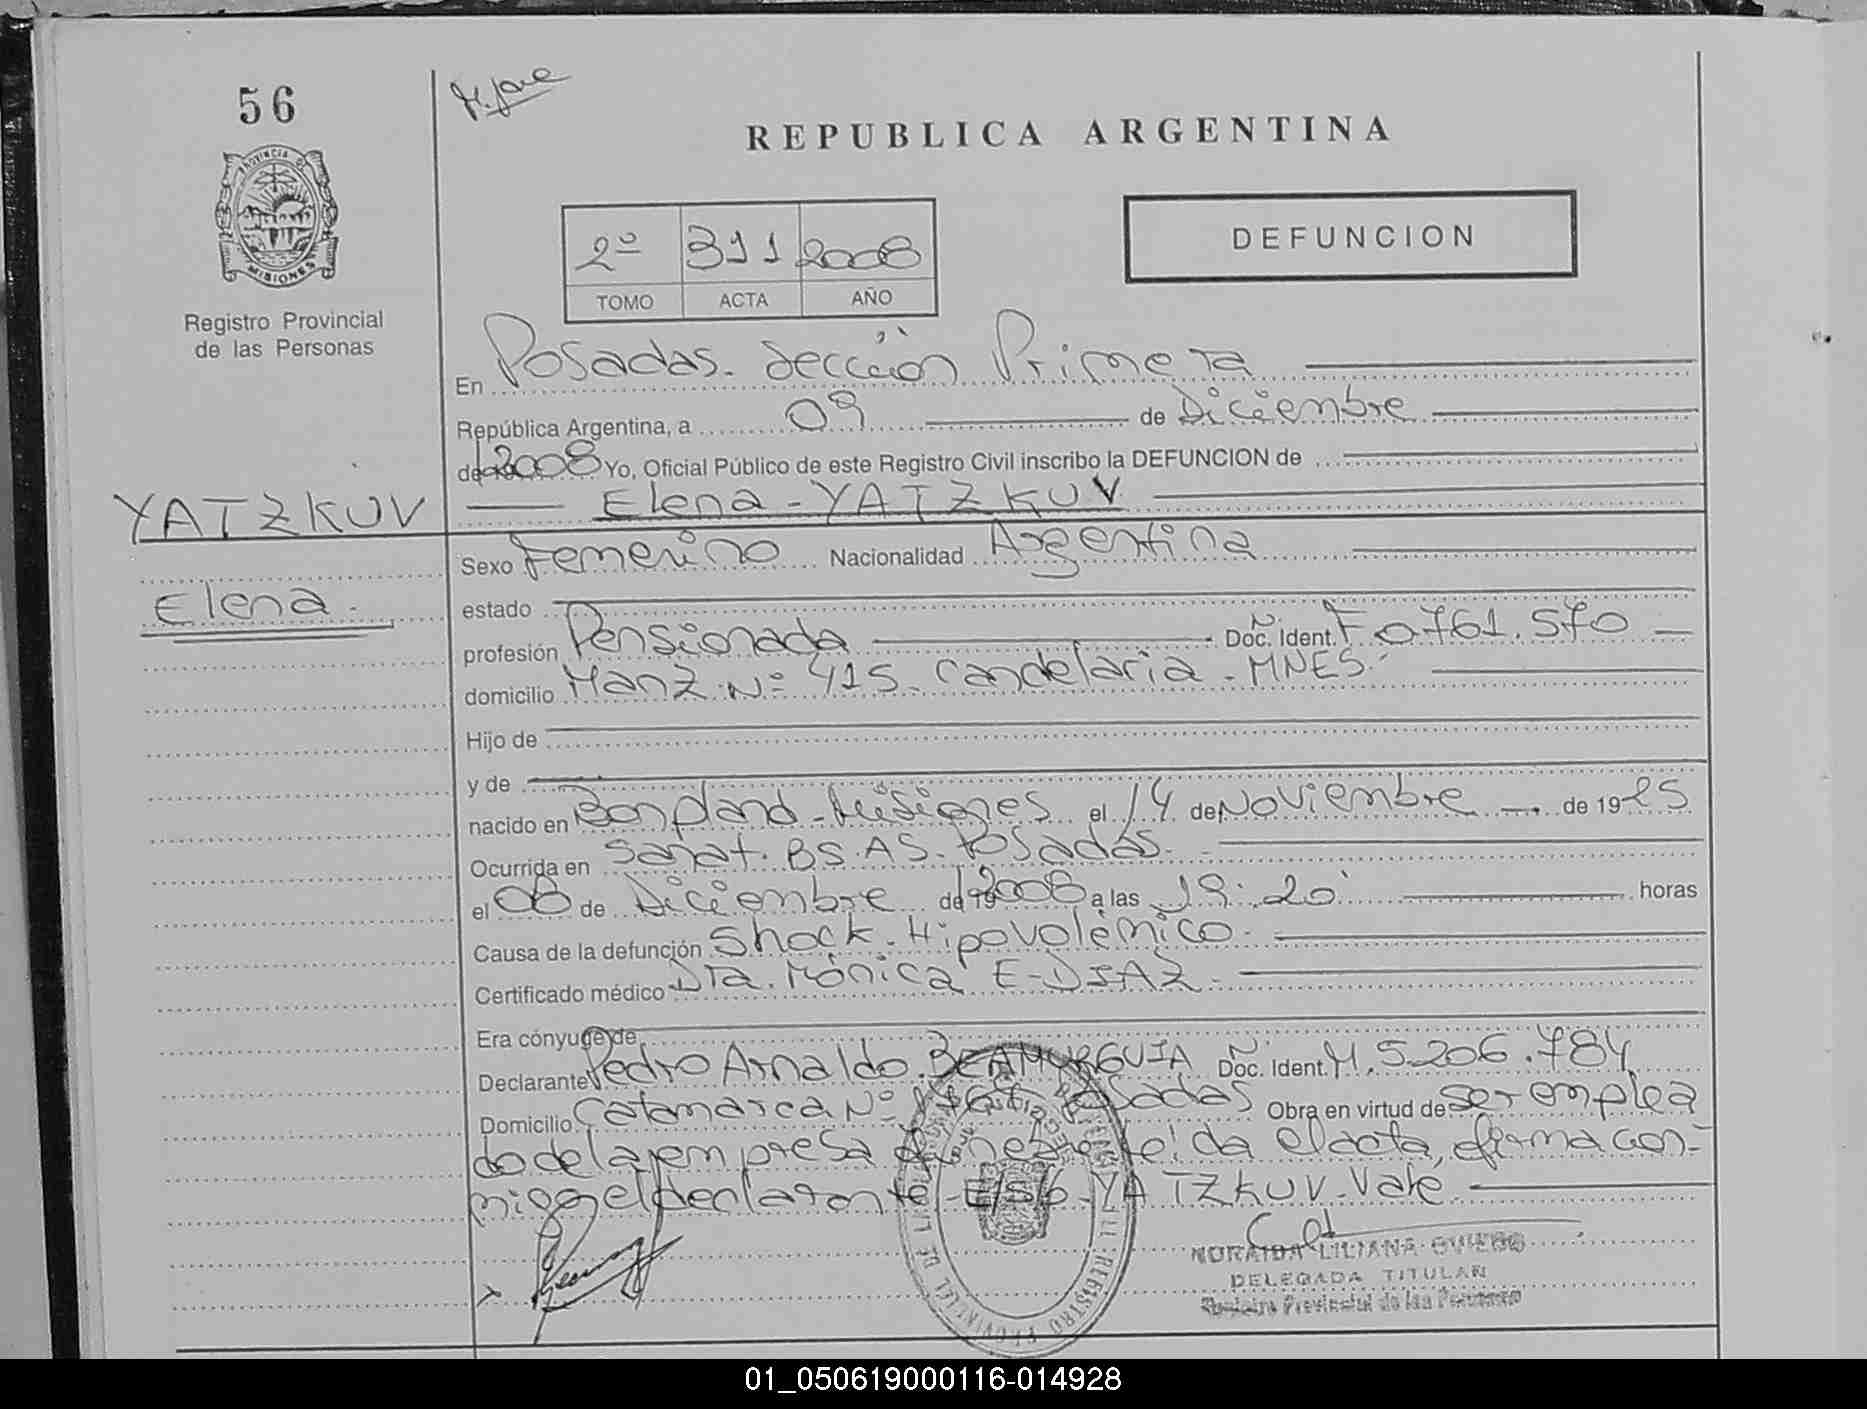 56
PROVINCIA DE
MISIONES
Registro Provincial
de las Personas
REPUBLICA ARGENTINA
2º 311 2008
TOMO ACTA AÑO
DEFUNCION
En Posadas. Sección Primera
República Argentina, a 09 de Diciembre
de 2008 Yo, Oficial Público de este Registro Civil inscribo la DEFUNCION de
YATZKUV
Elena - YATZKUV
Sexo Femenino Nacionalidad Argentina
Elena.
estado
profesión Pensionada Doc. Ident. F 0761.570
domicilio Manz. Nº 415. Candelaria - MNES.
Hijo de
y de
nacido en Bonpland - Misiones el 14 de Noviembre de 1925
Ocurrida en Sanat. BS.AS. Posadas.
el 08 de Diciembre de 19 2008 a las 19:20 horas
Causa de la defunción Shock. Hipovolémico.
Certificado médico Dra. Mónica E. DIAZ.
Era cónyuge de
Declarante Pedro Arnaldo. BEAMURGUIA Doc. Ident. M. 5.206.784
Domicilio Catamarca Nº Posadas Obra en virtud de ser emplea
do de la empresa leída el acta, firma con-
migo el declarante - E/S/b - YATZKUV. Vale
NORAIDA LILIANA OVIEDO
DELEGADA TITULAR
Registro Provincial de las Personas
01_050619000116-014928